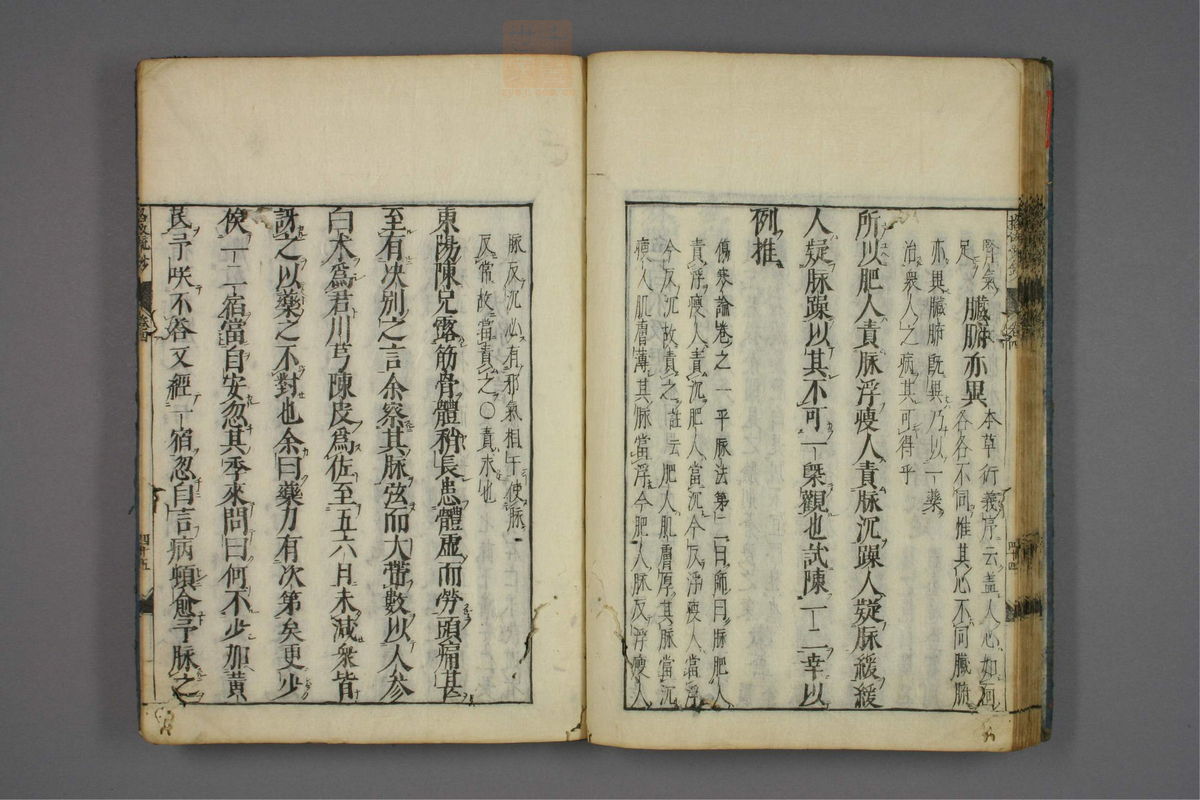 腎氣
足
臟腑亦異
本草衍義序云蓋人心如面
各各不同惟其心不同臟腑
亦異臟腑既異乃以一藥
治衆人之病其可得乎
所以肥人責脉浮瘦人責脉沉躁人疑脉緩緩
人疑脉躁以其不可一槩觀也試陳一二幸以
例推
傷寒論卷之一平脉法第二曰師曰脉肥人
責浮瘦人責沉肥人當沉今反浮瘦人當浮
今反沉故責之註云肥人肌膚厚其脉當沉
瘦人肌膚薄其脉當浮今肥人脉反浮瘦人
脉反沉必有邪氣相干使脉
反常故當責之〇責求也
東陽陳兄露筋骨體稍長患體虛而勞頭痛甚
至有决別之言余察其脉弦而大帶數以人參
白木爲君川芎陳皮爲佐至五六月未減衆皆
訝之以藥之不對也余曰藥力有次第矣更少
俟一二宿當自安忽其季來問曰何不少加黃
芪予咲不荅又經一宿忽自言病頓愈予脉之
四十四
四十五